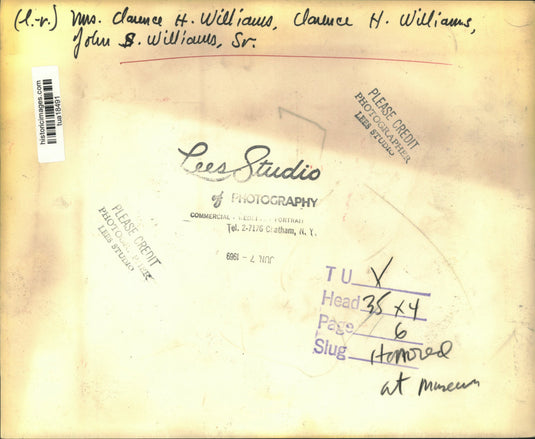 (l.-r.) Mrs. Clarence H. Williams, Clarence H. Williams,
John S. Williams, Sr.
historicimages.com
tua18491
PLEASE CREDIT
PHOTOGRAPHER
LEES STUDIO
Lees Studio
of PHOTOGRAPHY
COMMERCIAL - PORTRAIT
Tel. 2-7176 Chatham, N. Y.
PLEASE CREDIT
PHOTOGRAPHER
LEES STUDIO
JUN 7 - 1969
TU V
Head 35 x 4
Page 6
Slug Honored
at museum